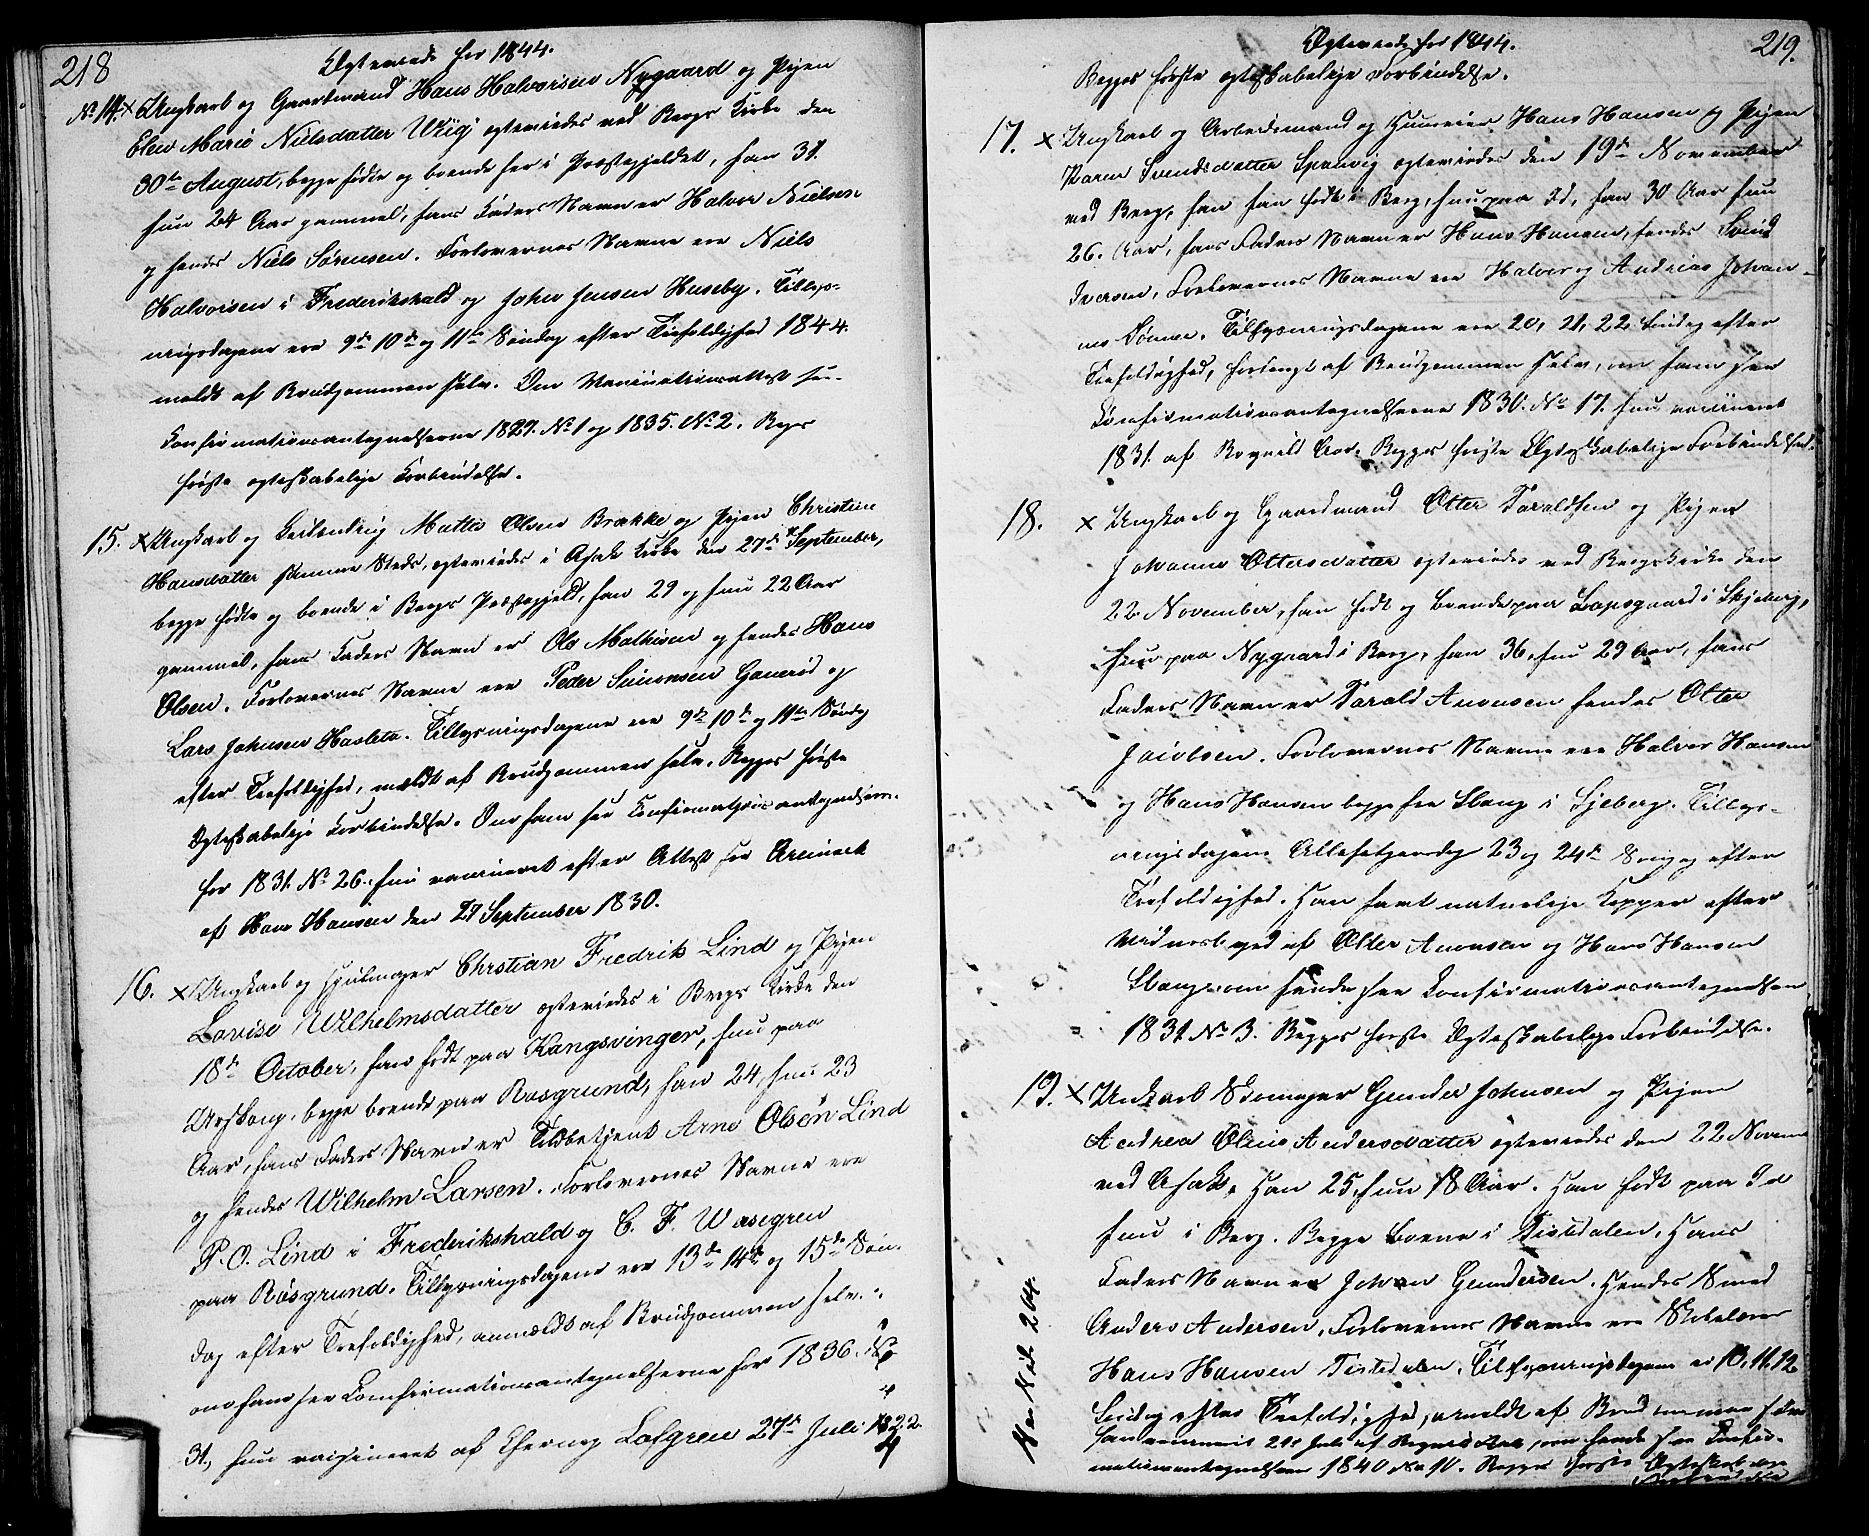 218
Ægteviede for 1844.
No 14. x Ungkarl og Gaardmand Hans Halvorsen Nygaard og Pigen
Elen Marie Nielsdatter Wiig ægteviedes ved Bergs Kirke den
30te August, begge fødte og boende her i Præstegjeldet, han 31.
hun 24 Aar gammel, hans Faders Navn er Halvor Nielsen
og hendes Niels Sørensen. Forlovernes Navne ere Niels
Halvorsen i Frederikshald og Johan Jensen Huseby. Tillys-
ningsdagene ere 9de 10de og 11te Søndag efter Trefoldighed 1844.
meldt af Brudgommen selv. Om Vaccinationsattest see
Konfirmationsantegnelserne 1827. No 1 og 1835. No 2. Beges
første ægteskabelige Forbindelse.
15. x Ungkarl og Leilending Mathis Olsen Brække og Pigen Christine
Hansdatter samme Steds, ægteviedes i Asak Kirke den 27de September,
begge fødte og boende i Bergs Præstegjeld, han 29 og hun 22 Aar
gammel, hans Faders Navn er Ole Mathisen og hendes Hans
Olsen. Forlovernes Navne ere Peder Simensen Ganerød og
Lars Johnsen Hasleto. Tillysningsdagene ere 9de 10de og 11te Søndag
efter Trefoldighed, meldt af Brudgommen selv. Begges første
Ægteskabelige Forbindelse. Om ham see Konfirmationsantegnelserne
for 1831. No 26. hun vaccineret efter Attest fra Aremark
af Hans Hansen den 27 September 1830.
16. x Ungkarl og Hjulmager Chrstian Fredrik Lind og Pigen
Lovise Wilhelmsdatter ægteviedes i Bergs Kirke den
18de October, han født paa Kongsvinger, hun paa
Urskoug, begge boende paa Røsgrund, han 24, hun 23
Aar, hans Faders Navn er Toldbetjent Arne Olsøn Lind
og hendes Wilhelm Larsen. Forlovernes Navne ere
P. O. Lind i Frederikshald og C. F. Wasegren
paa Røsgrund. Tillysningsdagene ere 13de 14de og 15de Søn-
dag efter Trefoldighed, anmeldt af Brudgommen selv.
om ham see Konfirmationsantegnelserne for 1836. No
31, hun vaccineret af Løfgren 27de Juli 1822.
219.
Ægteviede for 1844.
Begges første ægteskabelige Forbindelse.
17. x Ungkarl og Arbeidsmand og Huuseier Hans Hansen og Pigen
Karen Svendsdatter Sponvig ægteviedes den 19de November
ved Berg, han født i Berg, hun paa Id, han 30 Aar hun
26. Aar, hans Faders Navn er Hans Hansen, hendes Svend
Iversen, Forlovernes Navne ere Halvor og Andreas Johan-
nes Sønner. Tillysningsdagene ere 20, 21, 22 Søndag efter
Trefoldighed, forlangt af Brudgommen selv, om ham see
Konfirmationsantegnelserne 1830. No 17. hun vaccineret
1831. af Begges første Ægteskabelige Forbindelse.
18. x Ungkarl og Gaardmand Otter Taraldsen og Pigen
Johanne Ottersdatter ægteviedes ved Bergs Kirke den
22 November, han født og boende paa Lapsgaard i Skjeberg,
hun paa Nygaard i Berg, han 36, hun 29 Aar, hans
Faders Navn er Tarald Anonsen hendes Otter
Forlovernes Navne ere Halvor Hansen
og Hans Hansen begge fra Stang i Sjeberg. Tillys-
ningsdagene Allehelgensdag 23 og 24de Søndag efter
Trefoldighed. Han havt naturlige Kopper efter
Vidnesbyrd af Otter Anonsen og Hans Hansen
Stang om hende see Konfirmationsantegnelsen
1831. No 3. Begges første Ægteskabelige Forbindelse.
19. x Unkarl Skomager Gunder Johnsen og Pigen
Andrea Oline Andersdatter ægteviedes den 22 Novem
ved Asak. Han 25, hun 18 Aar. Han født paa Id
hun i Berg. Begge boende i Tistedalen. Hans
Faders Navn er Johan Gundersen. Hendes Smed
Anders Andersen, Forlovernes Navne ere Skolelærer
Hans Hansen Tistedalen. Tillysningsdagene er 10. 11. 12
Søndag efter Trefoldighed, anmeldt af Brudgommen selv
han vaccineret 21de Juli af om hende see Konfir-
mationsantegnelsen 1840 No 10. Begges første Ægteskabelige
Forbindelse